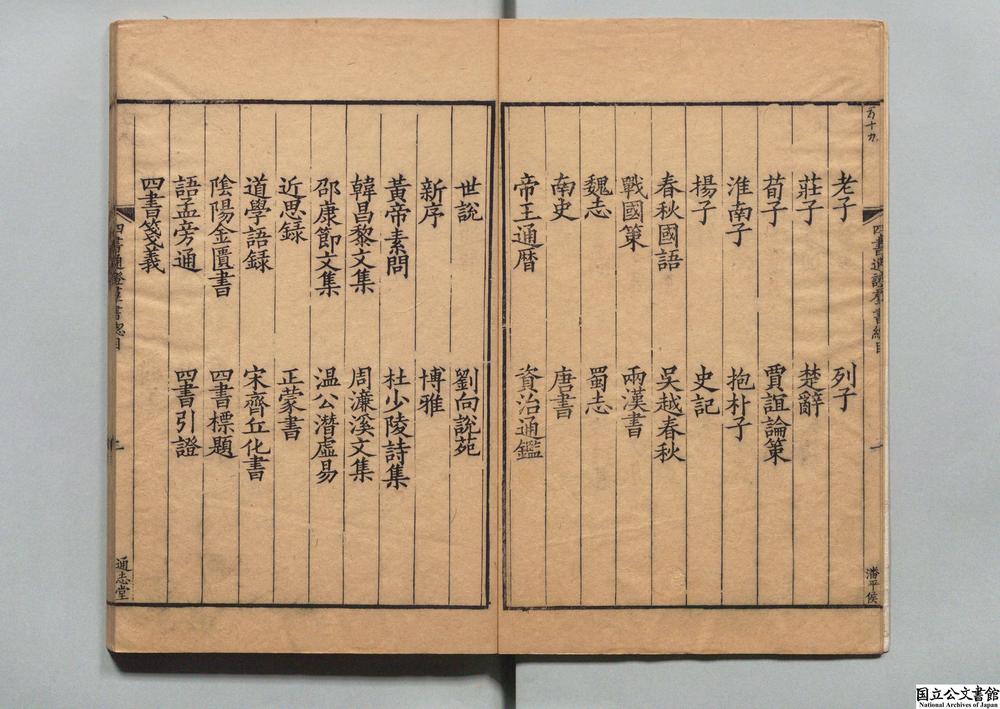 五十九
四書通證羣書總目
一
潘平侯
老子 列子
莊子 楚辭
荀子 賈誼論策
淮南子 抱朴子
揚子 史記
春秋國語 吳越春秋
戰國策 兩漢書
魏志 蜀志
南史 唐書
帝王通曆 資治通鑑
世說 劉向說苑
新序 博雅
黃帝素問 杜少陵詩集
韓昌黎文集 周濂溪文集
邵康節文集 温公潛虛易
近思録 正蒙書
道學語録 宋齊丘化書
陰陽金匱書 四書標題
語孟旁通 四書引證
四書箋義
四書通證羣書總目
通志堂
国立公文書館
National Archives of Japan